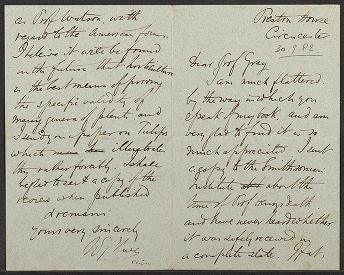 Preston House
Cirencester
30.9.82
Dear Prof Gray
I am much flattered
by the way in which you
speak of my book, and am
very glad to find it is so
much appreciated I sent
a copy to the Smithsonian
Institute about the
time of Prof death
and have never heard whether
it was safely received in
a complete state.
as Prof Watson with
regard to the American forms.
I believe it will be found
in the future that horticulture
is the best means of proving
the specific validity of
many genera of plants and
I send you a paper on Tulips
which illustrate
this rather forcibly. I shall
be glad to see a copy of the
review when published
& remain
Yours very sincerely